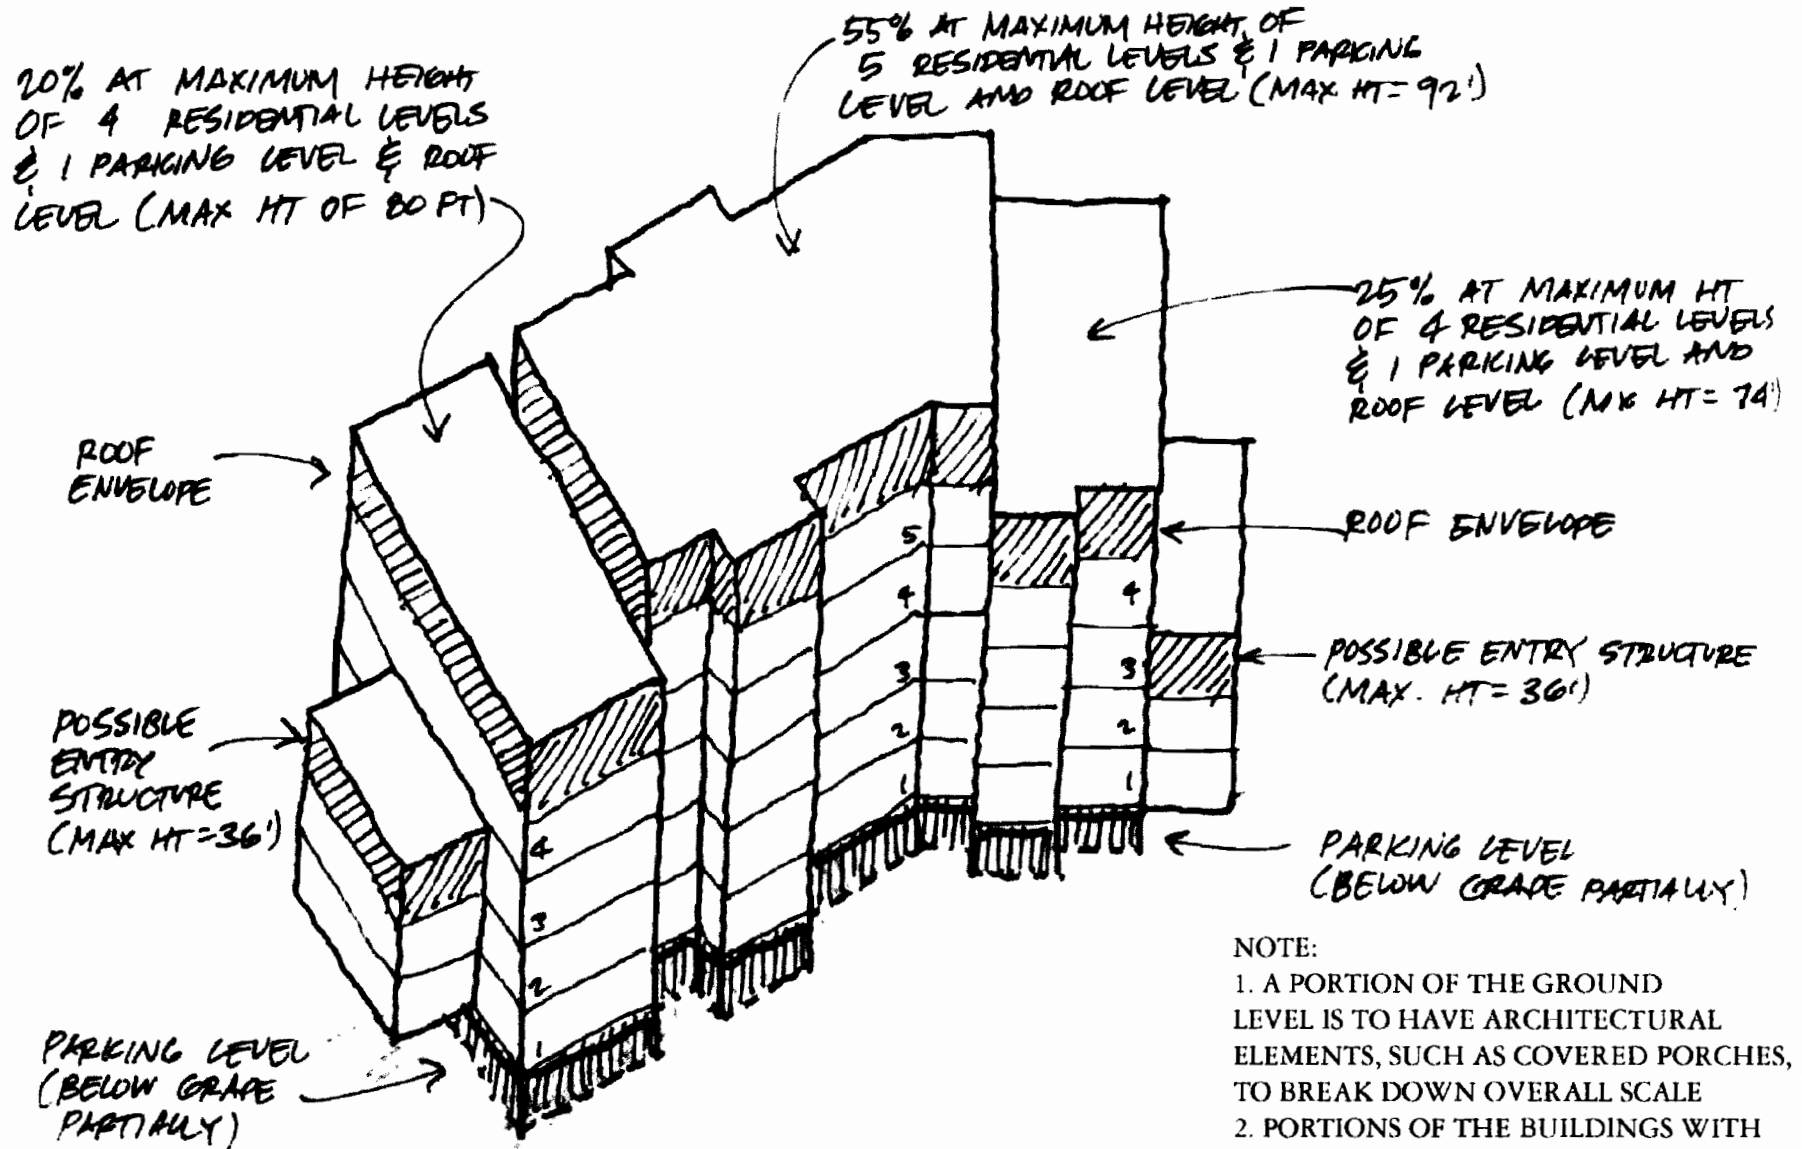 55% AT MAXIMUM HEIGHT OF
5 RESIDENTIAL LEVELS & 1 PARKING
LEVEL AND ROOF LEVEL (MAX HT = 92')
20% AT MAXIMUM HEIGHT
OF 4 RESIDENTIAL LEVELS
& 1 PARKING LEVEL & ROOF
LEVEL (MAX HT OF 80 FT)
25% AT MAXIMUM HT
OF 4 RESIDENTIAL LEVELS
& 1 PARKING LEVEL AND
ROOF LEVEL (MX HT = 74')
ROOF
ENVELOPE
ROOF ENVELOPE
5
4
3
2
1
4
3
2
1
POSSIBLE ENTRY STRUCTURE
(MAX. HT = 36')
POSSIBLE
ENTRY
STRUCTURE
(MAX HT = 36')
4
3
2
1
PARKING LEVEL
(BELOW GRADE PARTIALLY)
PARKING LEVEL
(BELOW GRADE
PARTIALLY)
NOTE:
1. A PORTION OF THE GROUND
LEVEL IS TO HAVE ARCHITECTURAL
ELEMENTS, SUCH AS COVERED PORCHES,
TO BREAK DOWN OVERALL SCALE
2. PORTIONS OF THE BUILDINGS WITH